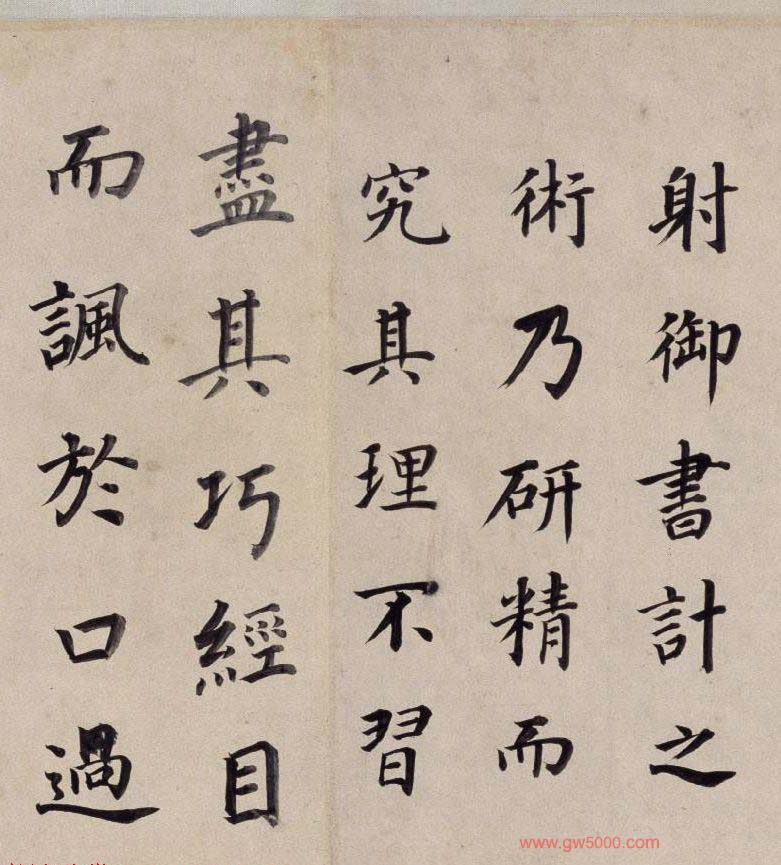 射御書計之
術乃研精而
究其理不習
盡其巧經目
而諷於口過
www.gw5000.com